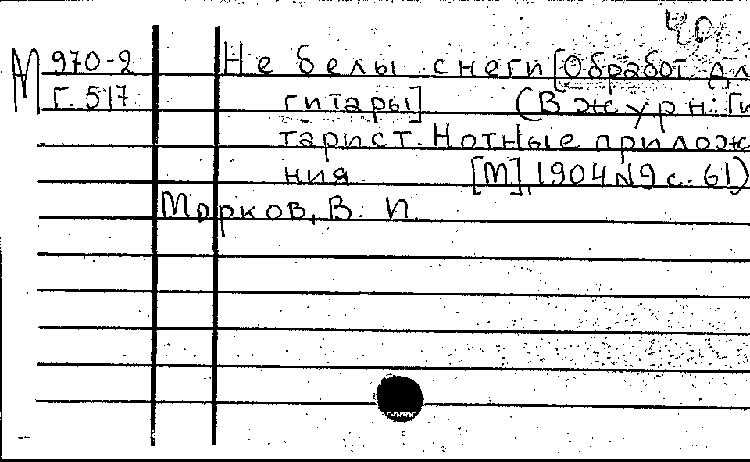 40
М 970-2 Не белы снеги [Обработ. дл
Г. 517 гитары] (В журн.: Ги
тарист. Нотные прилож
ния [М], 1904 N9 с. 61)
Марков, В. П.